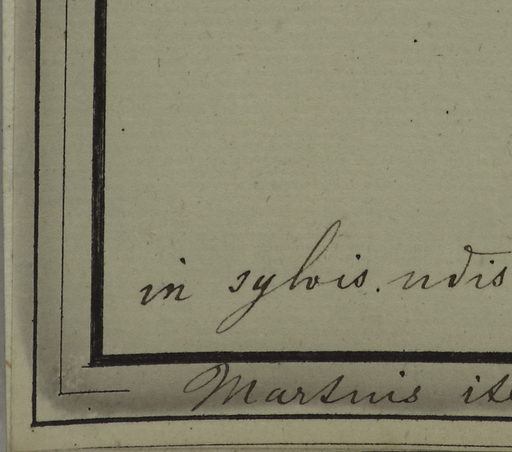 in sylvis. udis
Martius ite